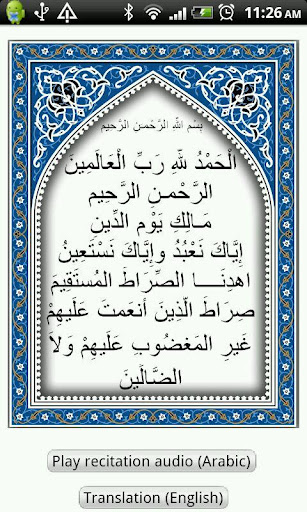 11:26 AM
بِسْمِ اللهِ الرَّحْمـنِ الرَّحِيمِ
الْحَمْدُ للّهِ رَبِّ الْعَالَمِينَ
الرَّحْمـنِ الرَّحِيمِ
مَـالِكِ يَوْمِ الدِّينِ
إِيَّاكَ نَعْبُدُ وإِيَّاكَ نَسْتَعِينُ
اهدِنَــــا الصِّرَاطَ المُستَقِيمَ
صِرَاطَ الَّذِينَ أَنعَمتَ عَلَيهِمْ
غَيرِ المَغضُوبِ عَلَيهِمْ وَلاَ
الضَّالِّينَ
Play recitation audio (Arabic)
Translation (English)